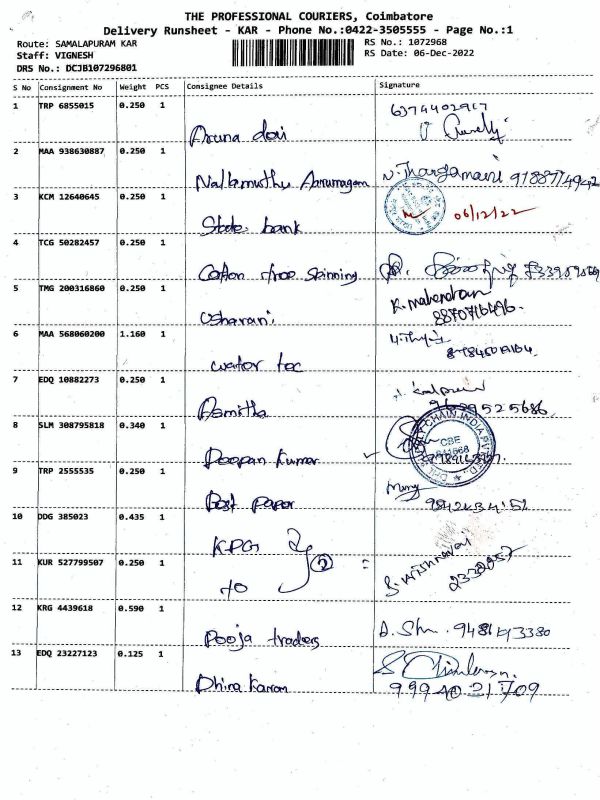 THE PROFESSIONAL COURIERS, Coimbatore
Delivery Runsheet - KAR - Phone No.:0422-3505555 - Page No.:1
Route: SAMALAPURAM KAR
Staff: VIGNESH
DRS No.: DCJB107296801
RS No.: 1072968
RS Date: 06-Dec-2022
S No Consignment No Weight PCS Consignee Details Signature
1 TRP 6855015 0.250 1 6374402917
Aruna devi
2 MAA 938630887 0.250 1
Nallamuthu Arumugam N. Thangamani
3 KCM 12640645 0.250 1
State bank 06/12/22
4 TCG 50282457 0.250 1
Cotton free Spinning
5 TMG 200316860 0.250 1 K. mahendran
Usharani
6 MAA 568060200 1.160 1
water tec
7 EDQ 10882273 0.250 1
Asmitha
8 SLM 308795818 0.340 1
Deepan Kumar CBE
9 TRP 2555535 0.250 1
Best Paper
10 DDG 385023 0.435 1
KPG
11 KUR 527799507 0.250 1
2
12 KRG 4439618 0.590 1
Pooja traders
13 EDQ 23227123 0.125 1
Dhina Karan 99940 21709